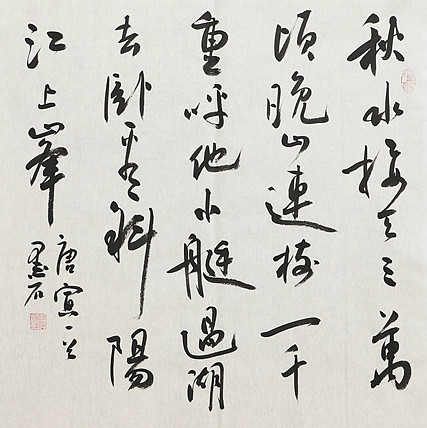 秋水接天三萬
頃晚山連樹一千
重呼他小艇過湖
去卧看斜陽
江上峯
唐寅一首
墨石